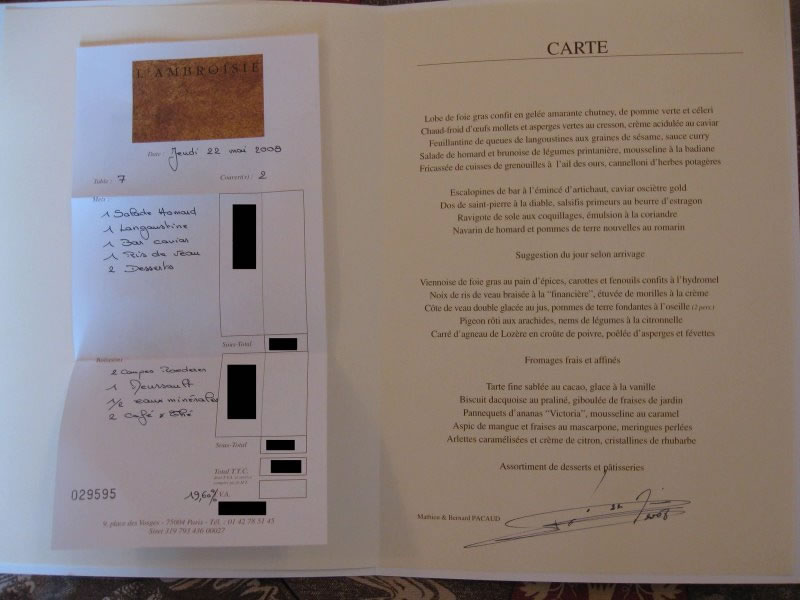 L'AMBROISIE
Date : Jeudi 22 mai 2008
Table : 7 Couvert(s) : 2
1 Salade Homard
1 Langoustine
1 Bar caviar
1 Ris de veau
2 Desserts
Sous-Total
Boissons
2 Coupes Roederer
1 Meursault
1/2 eaux minérales
2 Café + Thé
Sous-Total
Total T.T.C.
029595
19,60% V.A.
9, place des Vosges - 75004 Paris - Tél. : 01 42 78 51 45
Siret 319 793 436 00027
CARTE
Lobe de foie gras confit en gelée amarante chutney, de pomme verte et céleri
Chaud-froid d'œufs mollets et asperges vertes au cresson, crème acidulée au caviar
Feuillantine de queues de langoustines aux graines de sésame, sauce curry
Salade de homard et brunoise de légumes printanière, mousseline à la badiane
Fricassée de cuisses de grenouilles à l'ail des ours, cannelloni d'herbes potagères
Escalopines de bar à l'émincé d'artichaut, caviar osciètre gold
Dos de saint-pierre à la diable, salsifis primeurs au beurre d'estragon
Ravigote de sole aux coquillages, émulsion à la coriandre
Navarin de homard et pommes de terre nouvelles au romarin
Suggestion du jour selon arrivage
Viennoise de foie gras au pain d'épices, carottes et fenouils confits à l'hydromel
Noix de ris de veau braisée à la "financière", étuvée de morilles à la crème
Côte de veau double glacée au jus, pommes de terre fondantes à l'oseille (2 pers.)
Pigeon rôti aux arachides, nems de légumes à la citronnelle
Carré d'agneau de Lozère en croûte de poivre, poêlée d'asperges et févettes
Fromages frais et affinés
Tarte fine sablée au cacao, glace à la vanille
Biscuit dacquoise au praliné, giboulée de fraises de jardin
Pannequets d'ananas "Victoria", mousseline au caramel
Aspic de mangue et fraises au mascarpone, meringues perlées
Arlettes caramélisées et crème de citron, cristallines de rhubarbe
Assortiment de desserts et pâtisseries
Mathieu & Bernard PACAUD